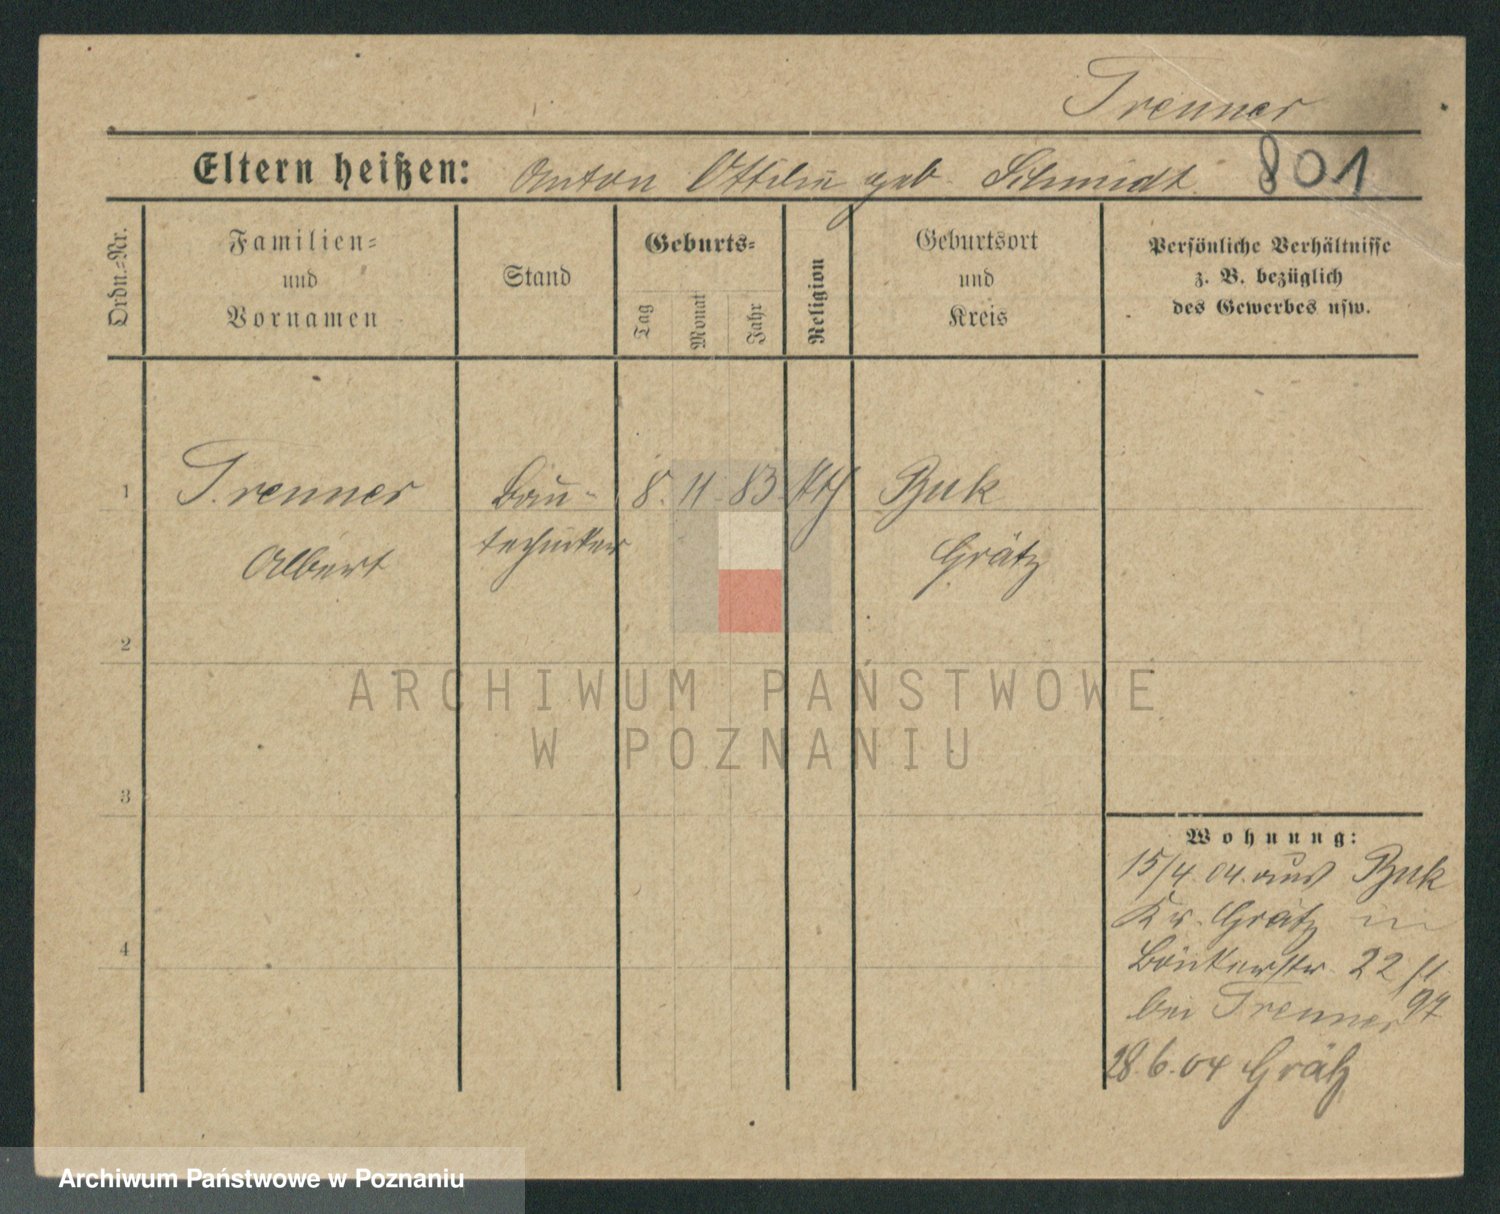 Trenner
Eltern heißen: Anton Ottilie geb. Schmidt 801
Ordn.=Nr.
Familien=
und
Vornamen
Stand
Geburts=
Tag
Monat
Jahr
Religion
Geburtsort
und
Kreis
Persönliche Verhältnisse
z. B. bezüglich
des Gewerbes usw.
1 Trenner Bau- 8. 11. 83. kth Buk
Albert techniker Grätz
2
ARCHIWUM PAŃSTWOWE
W POZNANIU
3
Wohnung:
15/4. 04. aus Buk
Kr. Grätz in
4
22 II
bei Trenner 97
28.6.04 Grätz
Archiwum Państwowe w Poznaniu